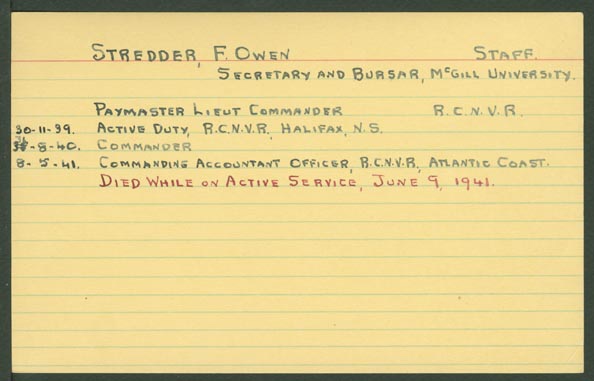 STREDDER, F. OWEN STAFF.
SECRETARY AND BURSAR, McGILL UNIVERSITY.
PAYMASTER LIEUT COMMANDER R.C.N.V.R.
30-11-39. ACTIVE DUTY, R.C.N.V.R, HALIFAX, N.S.
-8-40. COMMANDER
8-5-41. COMMANDING ACCOUNTANT OFFICER, R.C.N.V.R, ATLANTIC COAST.
DIED WHILE ON ACTIVE SERVICE, JUNE 9, 1941.